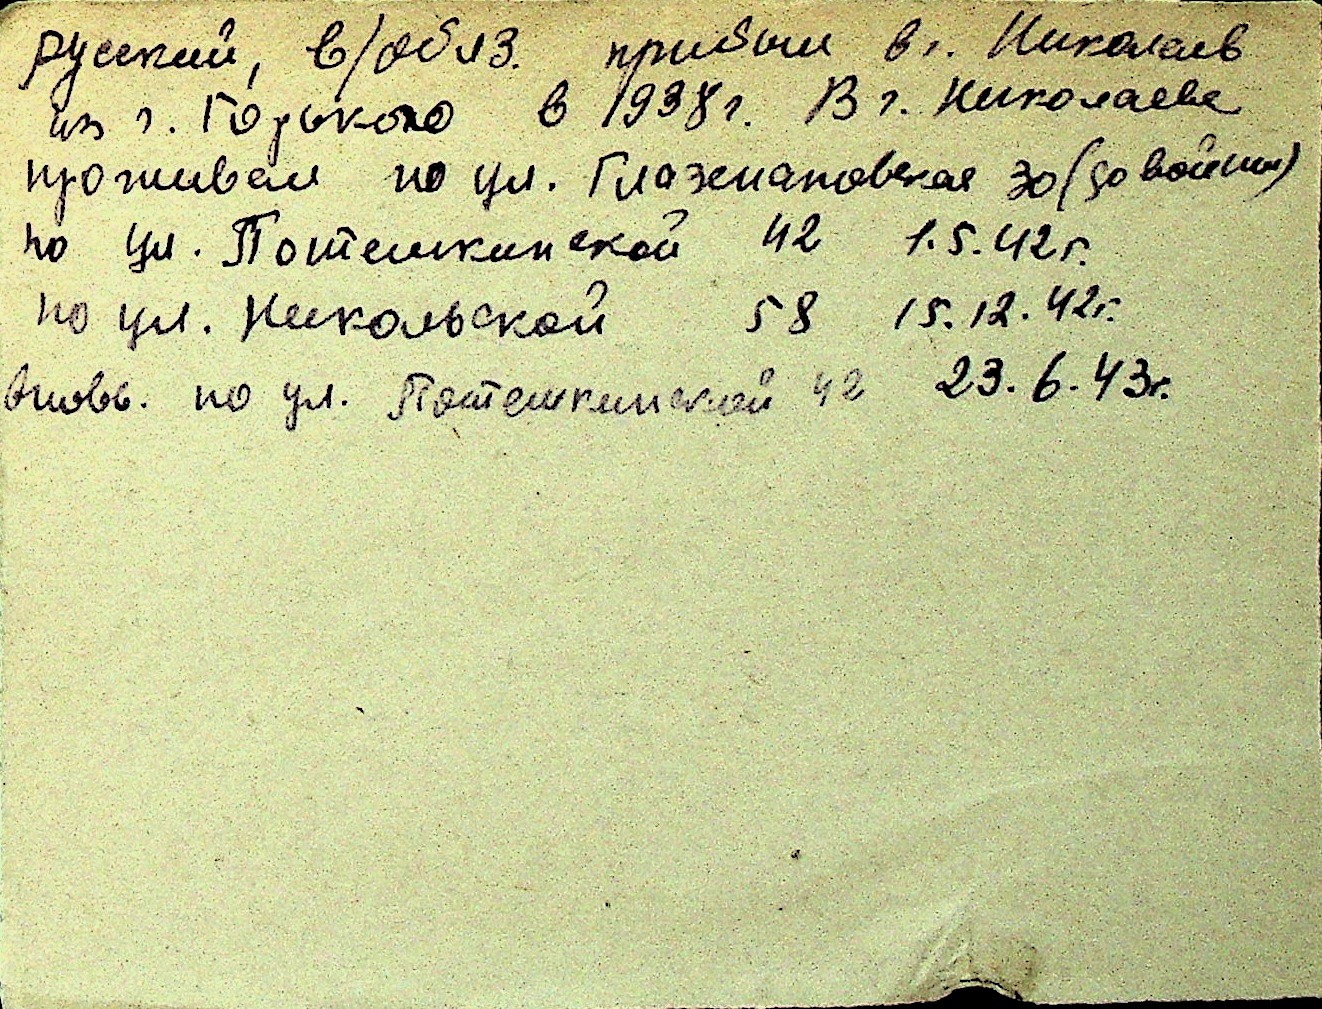 русский, в/обяз. прибыл в г. Николаев
из г. Горького в 1938г. В г. Николаеве
проживал по ул. Глазенаповская 30 (до войны)
по ул. Потемкинской 42 1.5.42г.
по ул. Никольской 58 15.12.42г.
вновь. по ул. Потемкинской 42 23.6.43г.